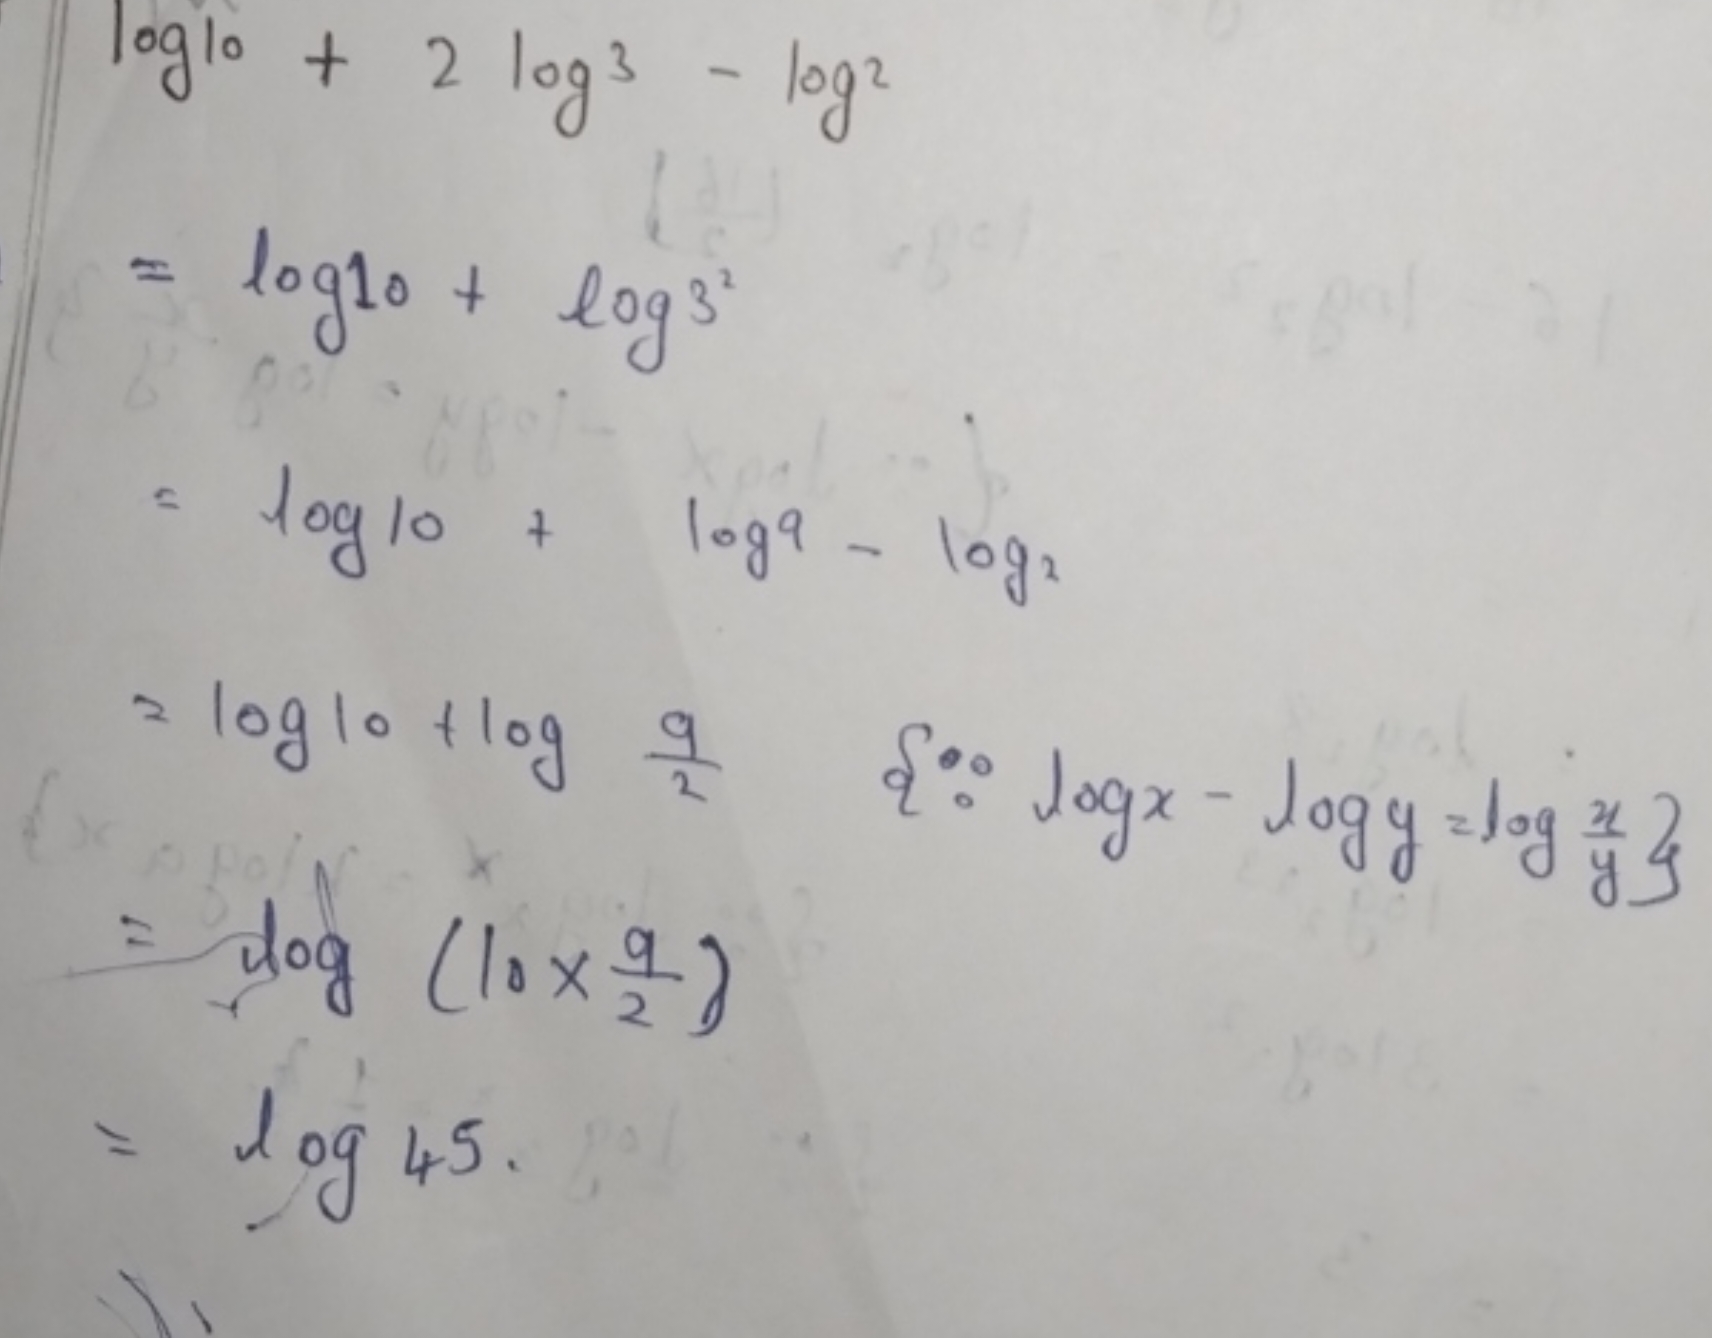 log10 + 2 log3 - log2
= log10 + log3²
= log10 + log9 - log2
= log10 + log 9/2 {∵ logx - logy = log x/y}
= log (10 × 9/2)
= log 45.